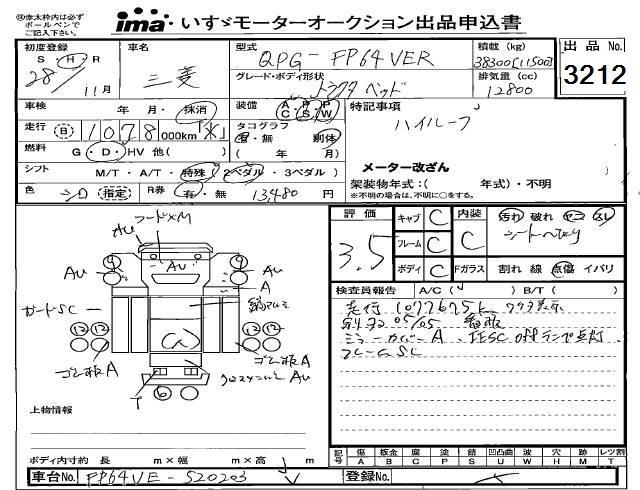 ※赤太枠内は必ず
ボールペンで
ご記入下さい。
ima・いすゞモーターオークション出品申込書
初度登録 車名 型式 積載(kg) 出品No.
S H R 28/11月 三菱 QPG-FP64VER 38300[11500] 3212
グレード・ボディ形状 トラクタヘッド 排気量(cc) 12800
車検 年・月・抹消 装備 A C P S P W 特記事項
走行 B 1078000km 「メ」 タコグラフ 有・無 別体 ハイルーフ
燃料 G・D・HV 他( ) ( 年 月) メーター改ざん
シフト M/T・A/T・特殊(2ペダル・3ペダル) 架装物年式:( 年式)・不明
※不明の場合は、不明に○をする。
色 シロ (指定) R券 有・無 13,480円
評価 3.5 キャブ C 内装 C 汚れ 破れ ヤニ スレ
フレーム C シートへたり
ボディ C Fガラス 割れ 線 点傷 イバリ
検査員報告 A/C( ) B/T( )
走行1077675k
別記05/05
ミラーカバーA
TESC OFFランプ点灯
フレームSC
フードXM
Au
Au
Au
Au
A
ガードSC
12 12 12 12
ゴム板A
ゴム板A
Au
T
6
上物情報
ボディ内寸約 長 m×幅 m×高 m
記号 傷A 板金B 腐C 塗P 錆S 凹凸曲U 波W 穴H 跡M レツ割T
車台No. FP64VE-520203 登録No.